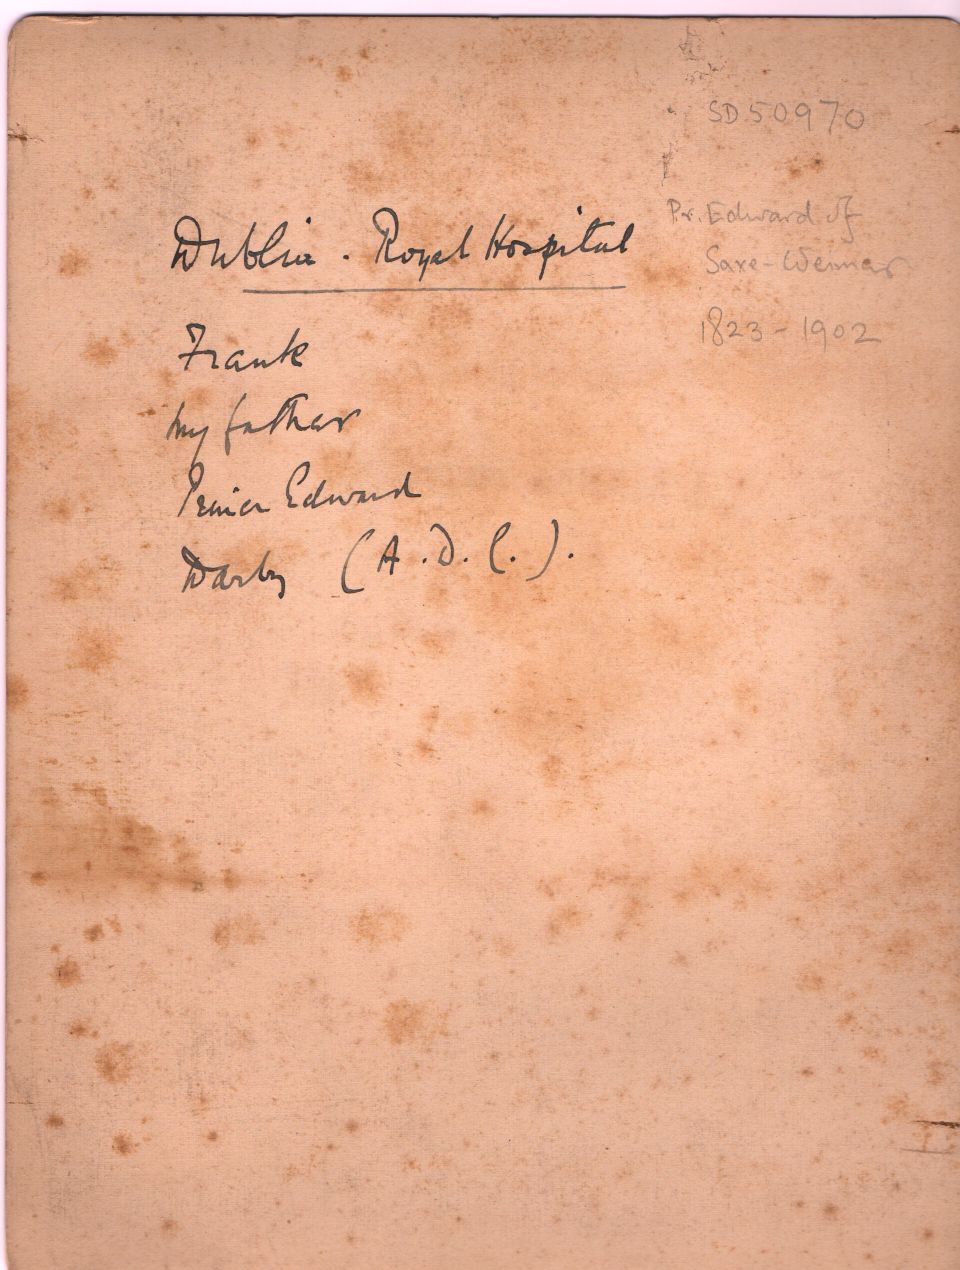 SD50970
Pr. Edward of
Saxe-Weimar
1823-1902
Dublin . Royal Hospital
Frank
my father
Prince Edward
Darby (A.D.C.).